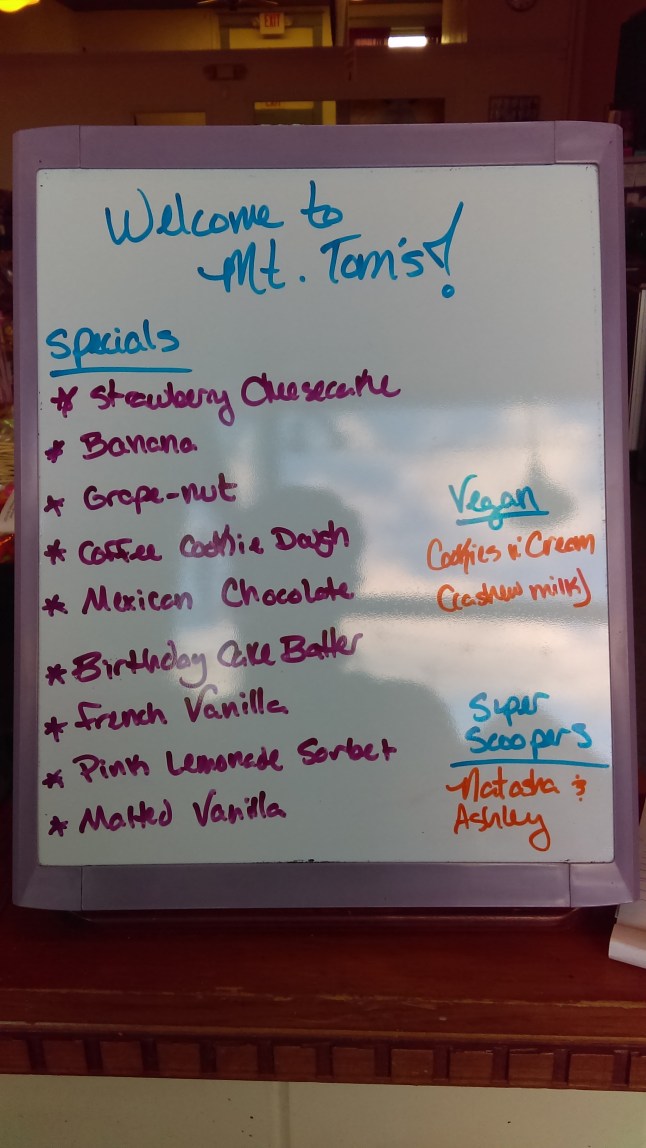 EXIT
Welcome to
Mt. Tom's!
Specials
* Strawberry Cheesecake
* Banana
* Grape-nut
* Coffee Cookie Dough
* Mexican Chocolate
* Birthday Cake Batter
* French Vanilla
* Pink Lemonade Sorbet
* Malted Vanilla
Vegan
Cookies n' Cream
(cashew milk)
Super
Scoopers
Natasha &
Ashley